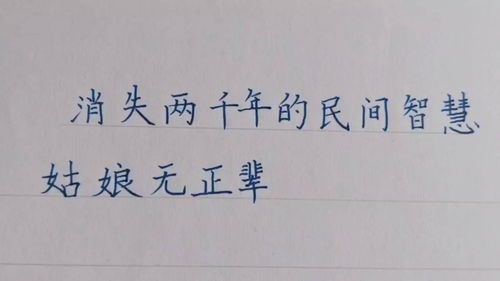 消失两千年的民间智慧
姑娘无正辈